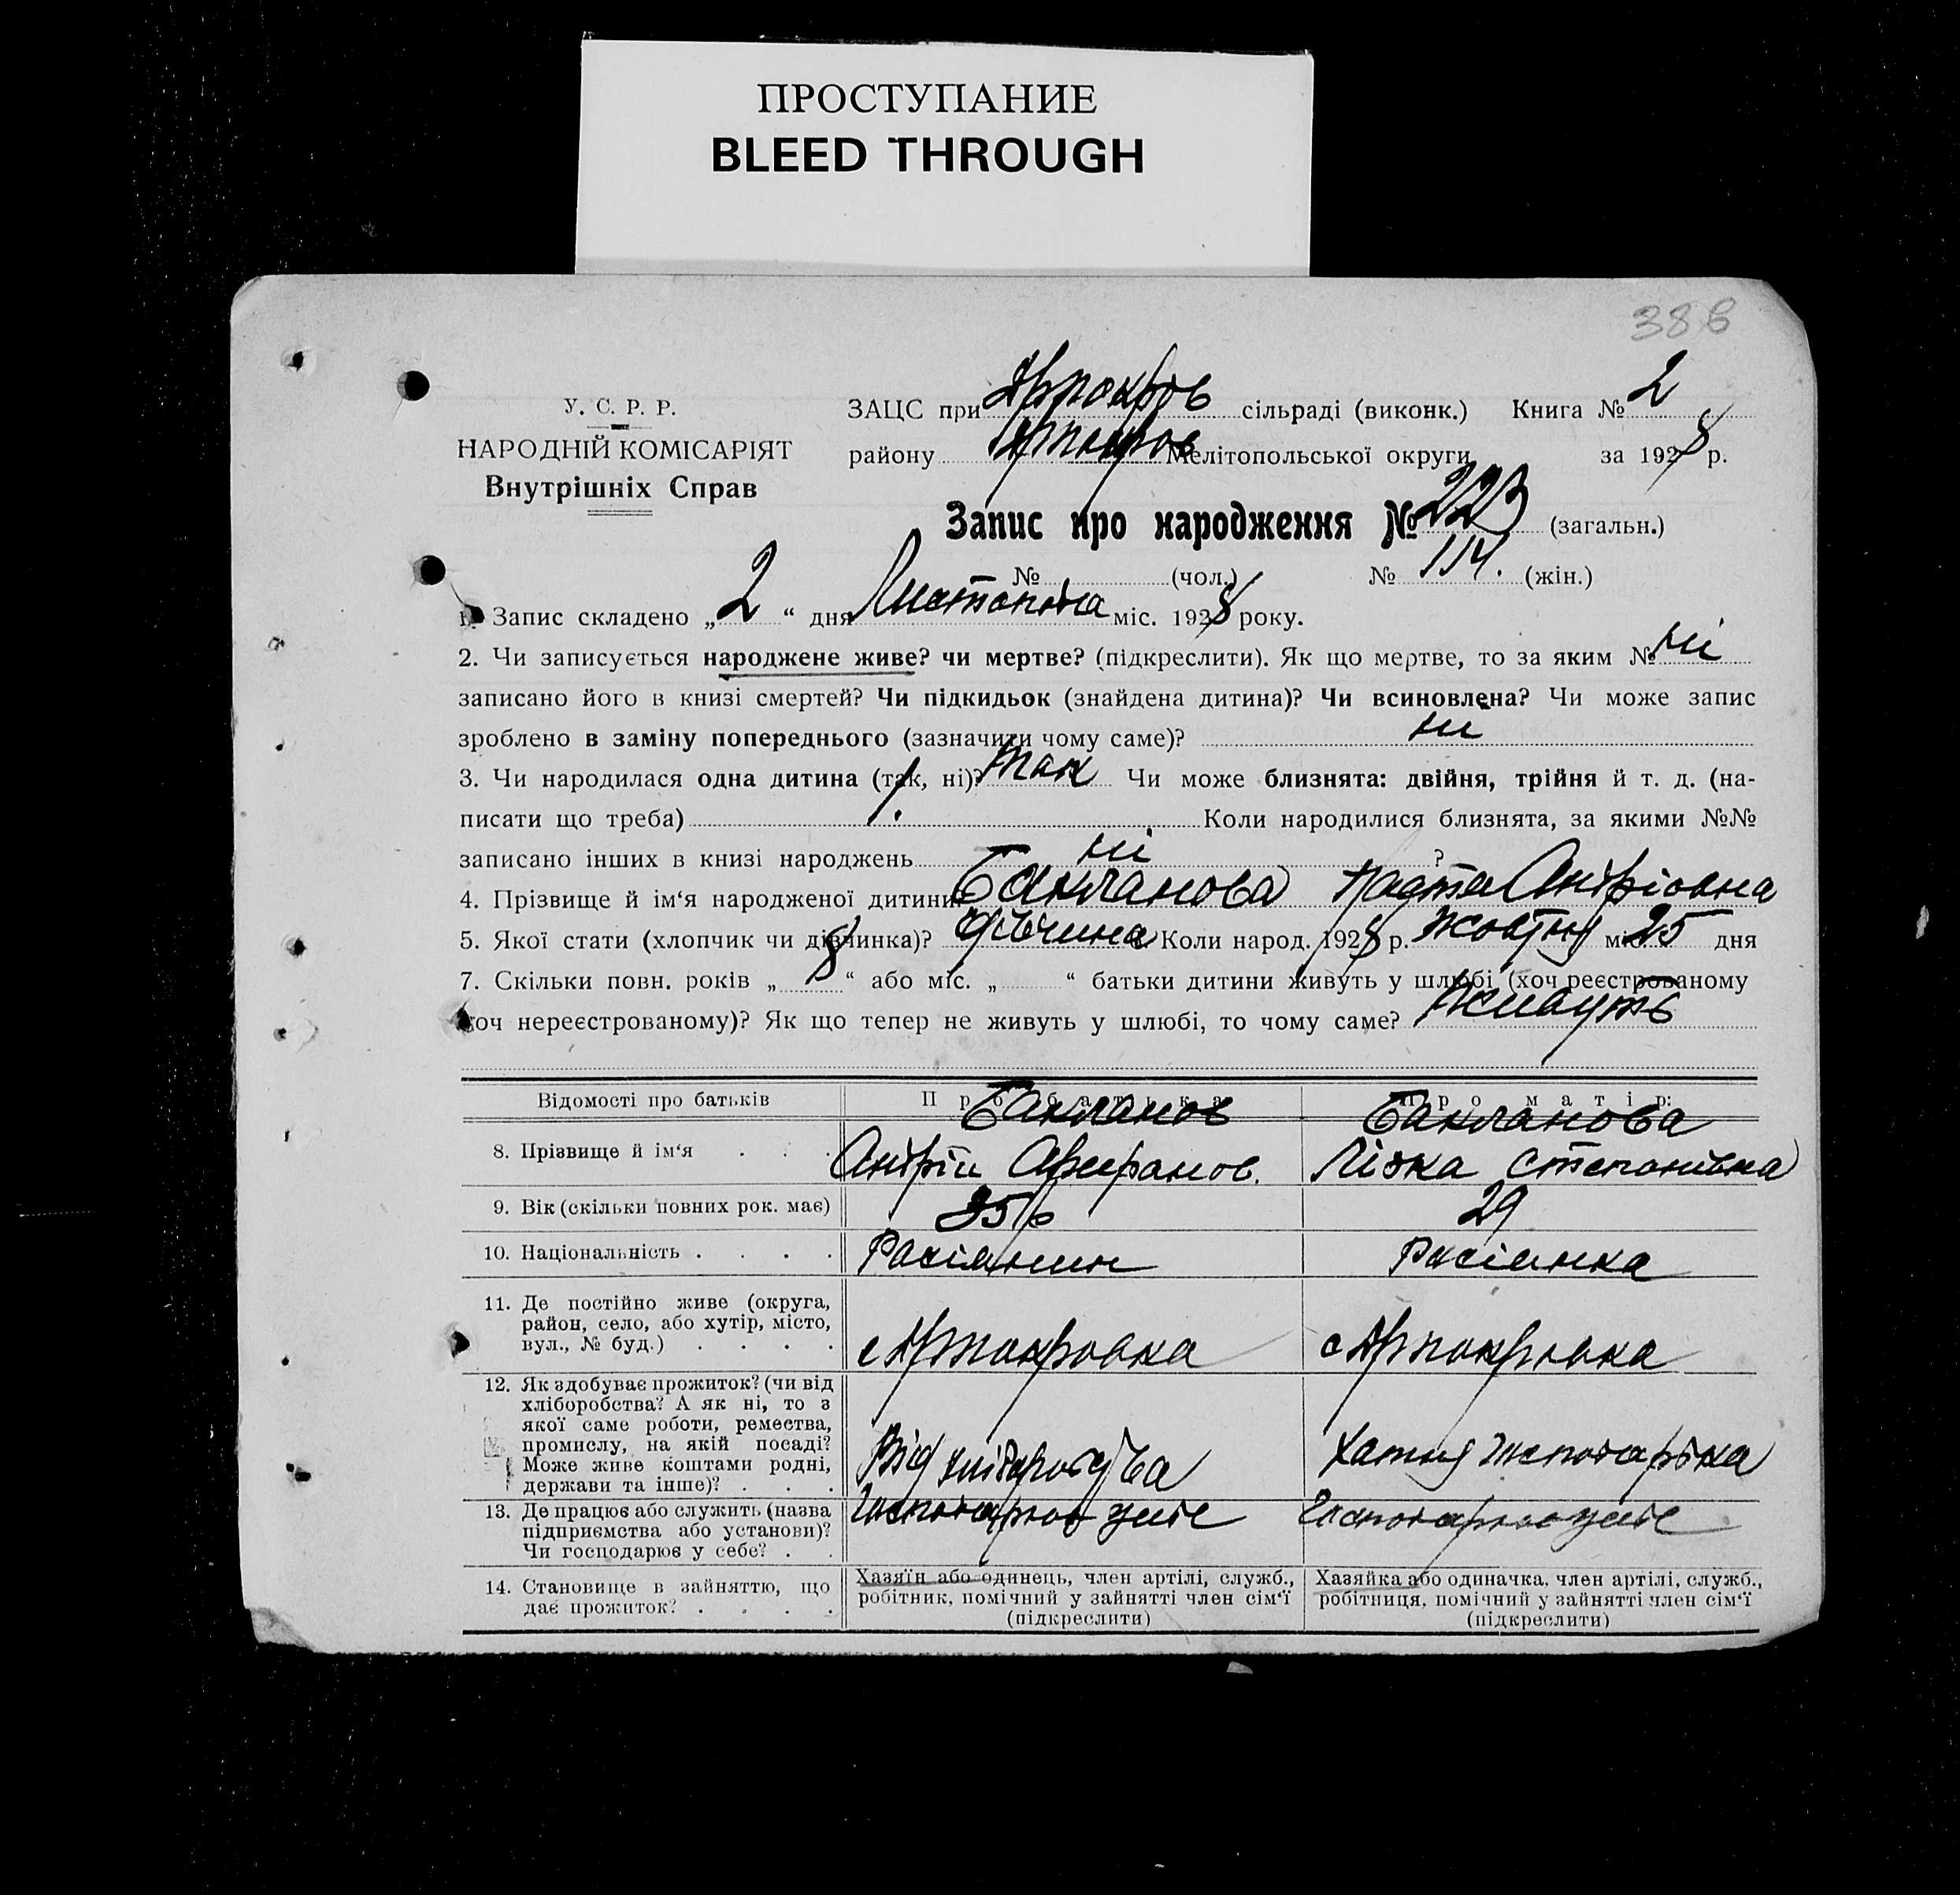 ПРОСТУПАНИЕ
BLEED THROUGH
388
У. С. Р. Р.
НАРОДНІЙ КОМІСАРІЯТ
Внутрішніх Справ
ЗАЦС при сільраді (виконк.) Книга № 2
району Мелітопольської округи за 1928 р.
Запис про народження № 223 (загальн.)
№ (чол.) № 114. (жін.)
1. Запис складено „ 2 “ дня Листопада міс. 1928 року.
2. Чи записується народжене живе? чи мертве? (підкреслити). Як що мертве, то за яким № ні
записано його в книзі смертей? Чи підкидьок (знайдена дитина)? Чи всиновлена? Чи може запис
зроблено в заміну попереднього (зазначити чому саме)? ні
3. Чи народилася одна дитина (так, ні)? так Чи може близнята: двійня, трійня й т. д. (на-
писати що треба) Коли народилися близнята, за якими №№
записано інших в книзі народжень ні ?
4. Прізвище й ім‘я народженої дитини Бакланова
5. Якої стати (хлопчик чи дівчинка)? дівчина Коли народ. 1928 р. жовтня міс. 25 дня
7. Скільки повн. років „ 8 “ або міс. „ “ батьки дитини живуть у шлюбі (хоч реєстрованому
хоч нереєстрованому)? Як що тепер не живуть у шлюбі, то чому саме? живуть
Відомості про батьків Про батька Про матір:
8. Прізвище й ім‘я Бакланов Андрій Бакланова Степанівна
9. Вік (скільки повних рок. має) 35 29
10. Національність Расіянин Расіянка
11. Де постійно живе (округа,
район, село, або хутір, місто,
вул., № буд.)
с с
12. Як здобуває прожиток? (чи від
хліборобства? А як ні, то з
якої саме роботи, ремества,
промислу, на якій посаді?
Може живе коштами родні,
держави та інше)?
Від
Хатня
13. Де працює або служить (назва
підприємства або установи)?
Чи господарює у себе?
14. Становище в зайняттю, що
дає прожиток?
Хазяїн або одинець, член артілі, служб.,
робітник, помічний у зайнятті член сім‘ї
(підкреслити)
Хазяйка або одиначка, член артілі, служб.,
робітниця, помічний у зайнятті член сім‘ї
(підкреслити)